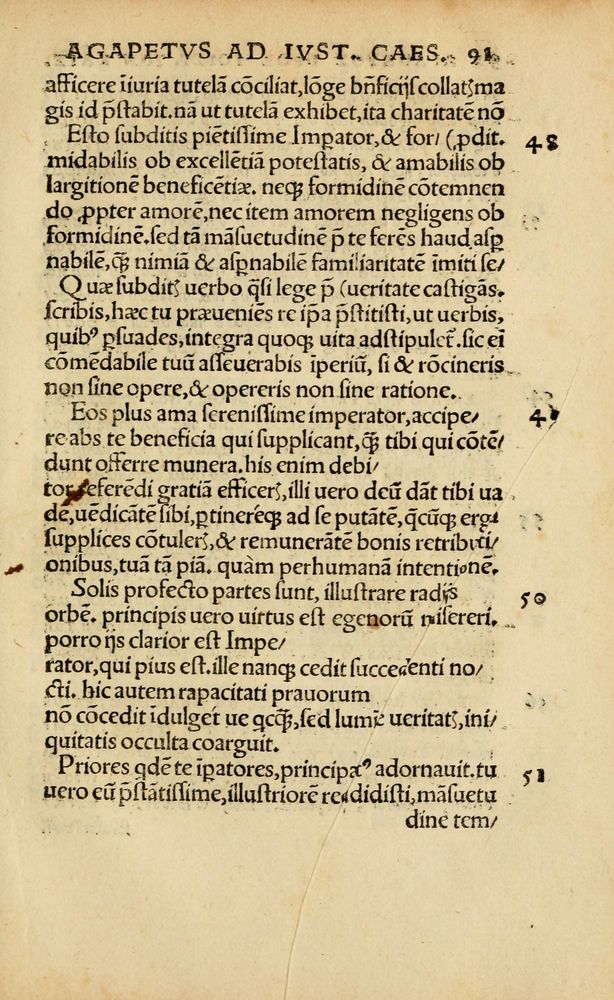 AGAPETVS AD IVST. CAES. 91
afficere īiuria tutelā cōciliat, lōge bn̄ficijs collatꝫ ma
gis id p̄stabit. nā ut tutelā exhibet, ita charitatē nō
Esto subditis piētissime Impator, & for/ (ꝓdit. 48
midabilis ob excellētiā potestatis, & amabilis ob
largitionē beneficētiæ. neqꝫ formidinē cōtemnen
do ꝓpter amorē, nec item amorem negligens ob
formidinē. sed tā māsuetudinē p̄ te ferēs haud aspꝑ
nabilē, qꝫ̄ nimiā & aspꝑnabilē familiaritatē īmiti se/
Quæ subditꝫ uerbo q̄si lege p̄ (ueritate castigās.
scribis, hæc tu præueniēs re ip̄a p̄stitisti, ut uerbis,
quibꝰ ꝑsuades, integra quoqꝫ uita adstipulet᷑. sic ei
cōmēdabile tuū asseuerabis īperiū, si & rōcineris
non sine opere, & opereris non sine ratione.
Eos plus ama serenissime imperator, accipe/ 49
re abs te beneficia qui supplicant, qꝫ̄ tibi qui cōtē/
dunt offerre munera. his enim debi/
referēdi gratiā efficerꝫ, illi uero deū dāt tibi ua
dē, uēdicātē sibi, ꝑtinereqꝫ ad se putātē, q̄cūqꝫ erga
supplices cōtulerꝫ, & remunerātē bonis retributi
onibus, tuā tā piā. quàm perhumanā intentionē.
Solis profecto partes sunt, illustrare radijs 50
orbē. principis uero uirtus est egenorū misereri.
porro ijs clarior est Impe/
rator, qui pius est. ille nanqꝫ cedit succedenti no/
cti. hic autem rapacitati prauorum
nō cōcedit īdulget ue qcqꝫ̄, sed lumīe ueritatꝫ, ini/
quitatis occulta coarguit.
Priores qdē te īpatores, principatꝰ adornauit. tu 51
uero eū p̄stātissime, illustriorē reddidisti, māsuetu
dine tem/